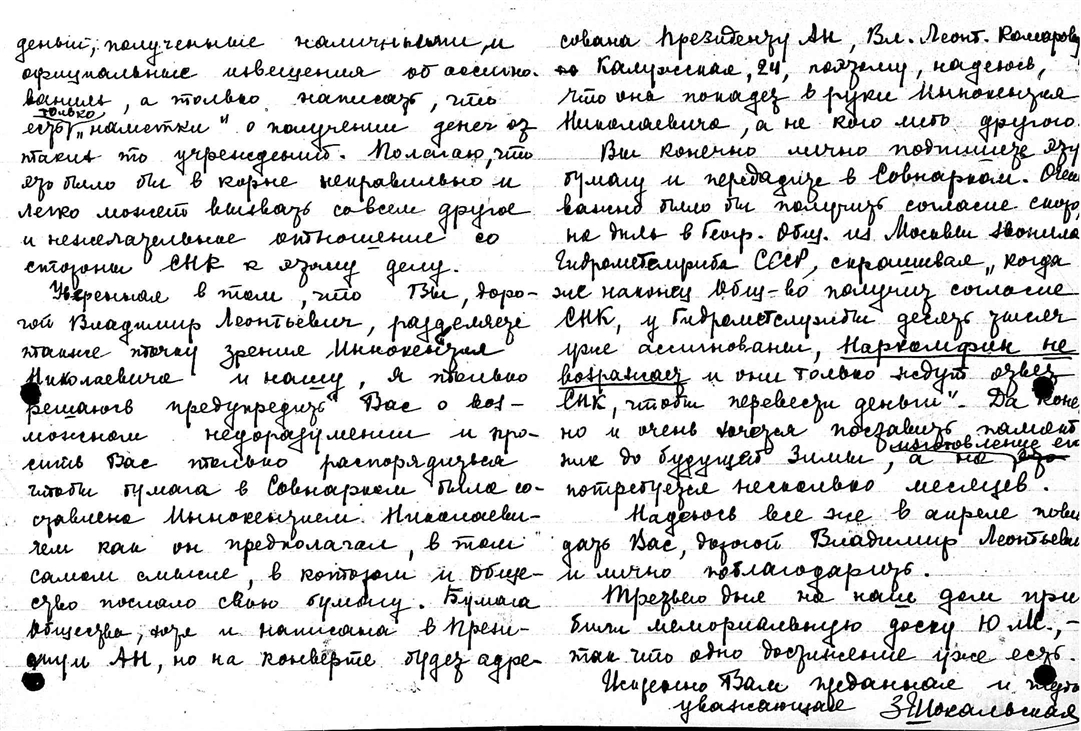 деньги, полученные наличными, и
официальные извещения об ассигно-
ваниях, а только написать, что
только
есть „наметки" о получении денег от
таких то учреждений. Полагаю, что
это было бы в корне неправильно и
легко может вызвать совсем другое
и нежелательное отношение со
стороны СНК к этому делу.
Уверенная в том, что Вы, доро-
гой Владимир Леонтьевич, разделяете
также точку зрения Иннокентия
Николаевича и нашу, я только
решаюсь предупредить Вас о воз-
можном недоразумении и про-
сить Вас только распорядиться
чтобы бумага в Совнарком была со-
ставлена Иннокентием Николаеви-
чем как он предполагал, в том
самом смысле, в котором и Обще-
ство послало свою бумагу. Бумага
Общества, хотя и написана в Прези-
диум АН, но на конверте будет адре-
сована Президенту АН, Вл. Леонт. Комарову
Калужская, 24, поэтому, надеюсь,
что она попадет в руки Иннокентия
Николаевича, а не кого либо другого.
Вы конечно лично подпишете эту
бумагу и передадите в Совнарком. Очень
важно было бы получить согласие скоро,
на днях в Геогр. Общ. из Москвы звонила
Гидрометслужба СССР, спрашивая „когда
же наконец Общ-во получит согласие
СНК, у Гидрометслужбы десять тысяч
уже ассигнованы, Наркомфин не
возражает и они только ждут ответ
СНК, чтобы перевести деньги". Да коне
но и очень хочется поставить памят
ник до будущей зимы, а на изготовление его
потребуется несколько месяцев.
Надеюсь все же в апреле пови
дать Вас, дорогой Владимир Леонтьеви
и лично поблагодарить.
Третьего дня на наш дом при
били мемориальную доску Ю. М., -
так что одно достижение уже есть.
Искренно Вам преданная и
уважающая З Шокальская